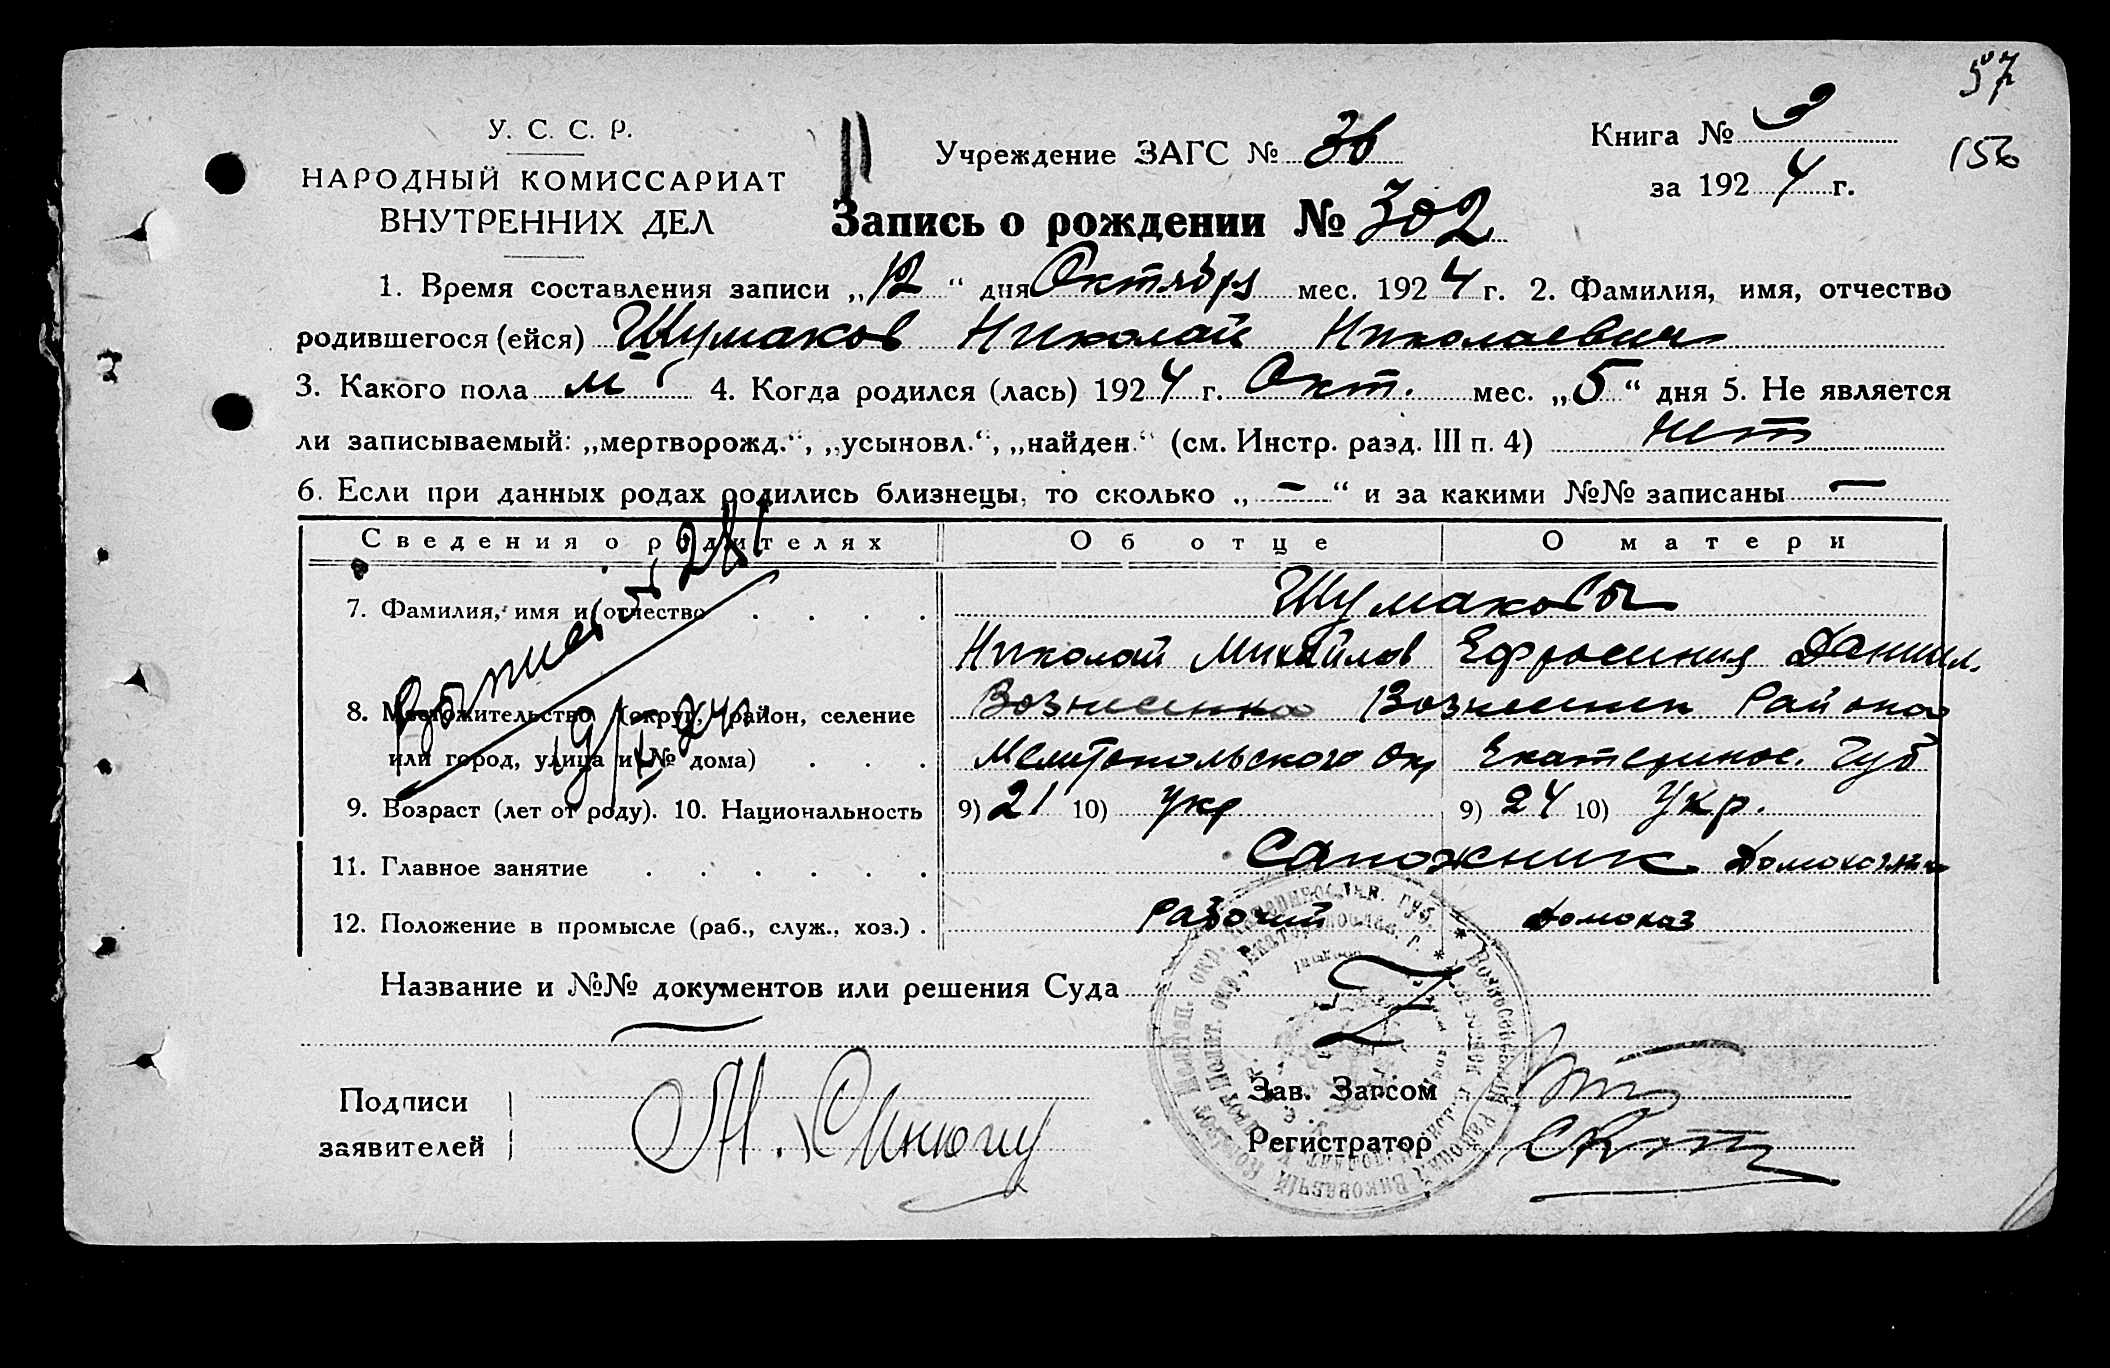 57
156
У. С. С. Р.
НАРОДНЫЙ КОМИССАРИАТ
ВНУТРЕННИХ ДЕЛ
Учреждение ЗАГС № 36
Книга №
за 1924 г.
Запись о рождении № 302
1. Время составления записи „12“ дня Октября мес. 1924 г. 2. Фамилия, имя, отчество
родившегося (ейся) Шумаков Николай Николаевич
3. Какого пола м 4. Когда родился (лась) 1924 г. Окт. мес. „5“ дня 5. Не является
ли записываемый: „мертворожд.“, „усыновл.“, „найден.“ (см. Инстр. разд. III п. 4) нет
6. Если при данных родах родились близнецы, то сколько „ - “ и за какими №№ записаны -
Сведения о родителях Об отце О матери
7. Фамилия, имя и отчество Шумаковы
Николай Михайлов Ефросиния Даниил.
8. Местожительство (округ, район, селение Вознесенка Вознесенск Района
или город, улица и № дома) Мелитопольского Ок Екатеринос. Губ
9. Возраст (лет от роду). 10. Национальность 9) 21 10) Укр 9) 24 10) Укр.
11. Главное занятие Сапожник Домохозяйка
12. Положение в промысле (раб., служ., хоз.) Рабочий домохаз
281
Название и №№ документов или решения Суда
Подписи
заявителей
Зав. Загсом
Регистратор